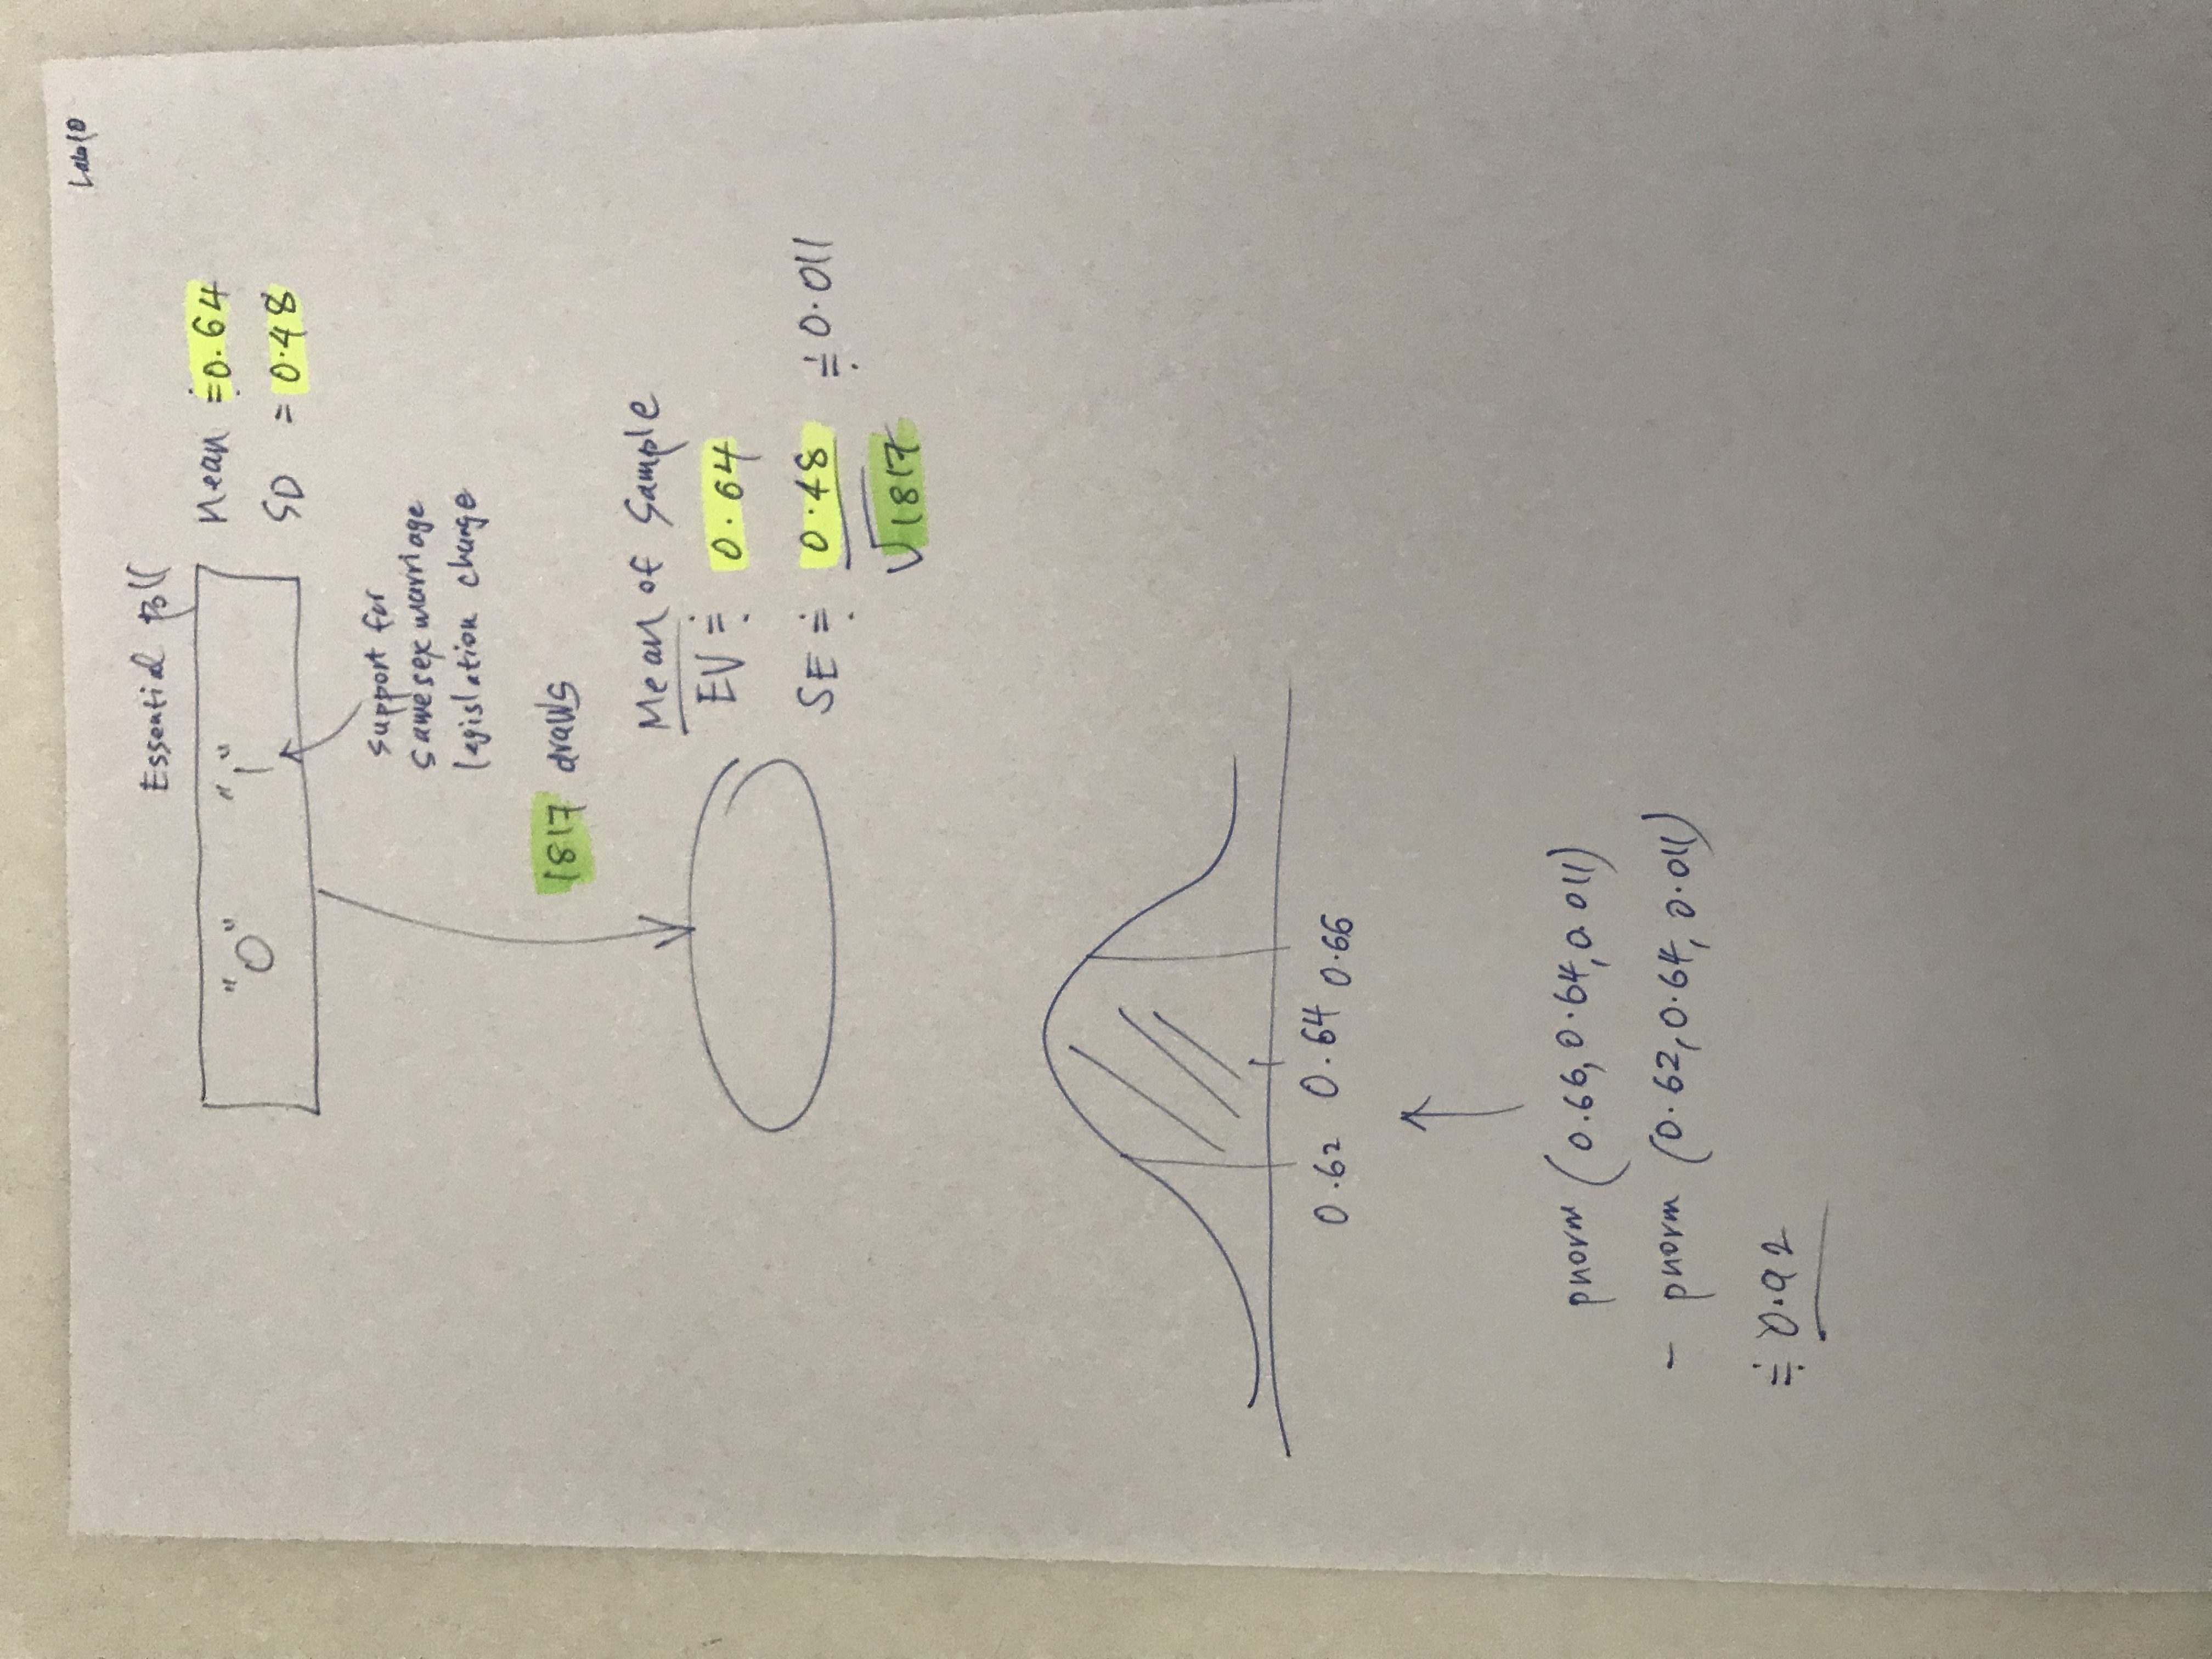 Lab10
Essential poll
"0" "1"
Mean ≑ 0.64
SD = 0.48
support for
same sex marriage
legislation change
1817 draws
Mean of Sample
EV ≑ 0.64
SE ≑ 0.48 ≑ 0.011
√1817
0.62 0.64 0.66
pnorm (0.66, 0.64, 0.011)
- pnorm (0.62, 0.64, 0.011)
≑ 0.92